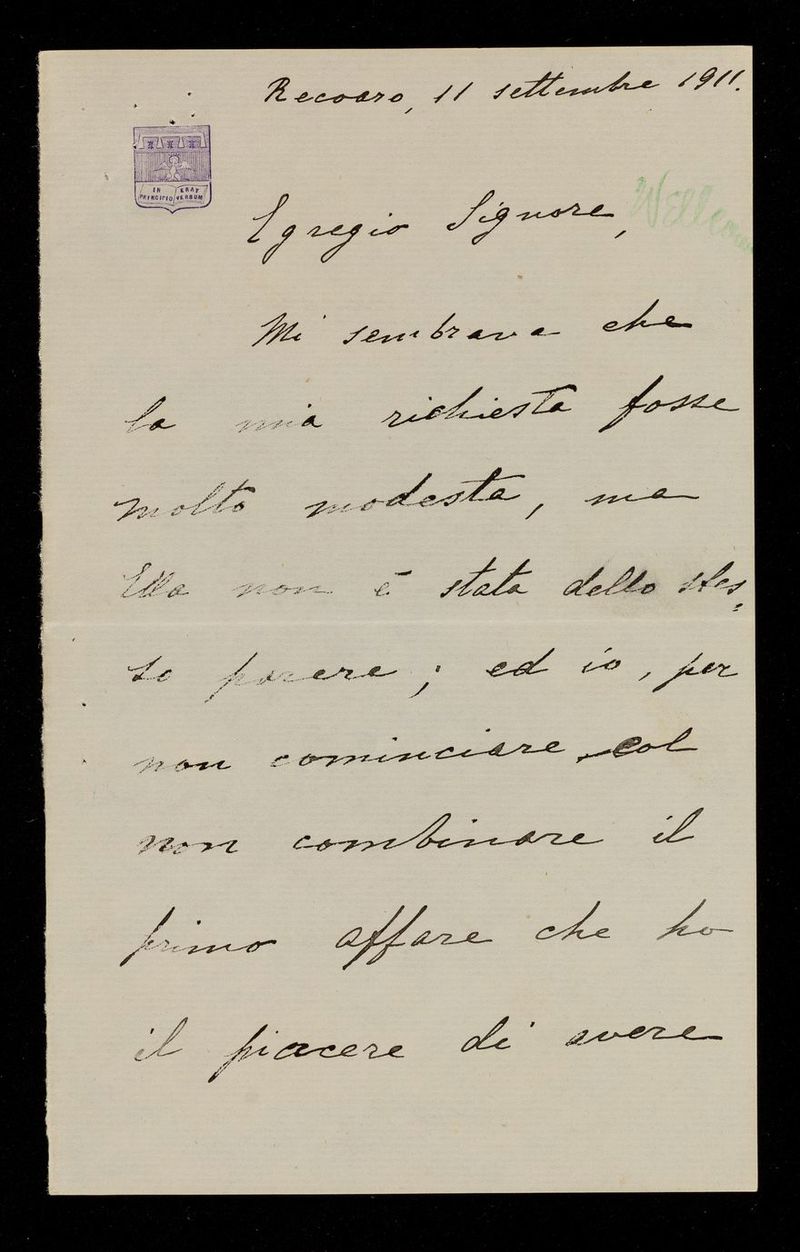 Recoaro, 11 settembre 1911.
IN PRINCIPIO ERAT VERBUM
Egregio Signore,
Mi sembrava che
la mia richiesta fosse
molto modesta, ma
Ella non è stata dello stes=
so parere; ed io, per
non cominciare col
non combinare il
primo affare che ho
il piacere di avere